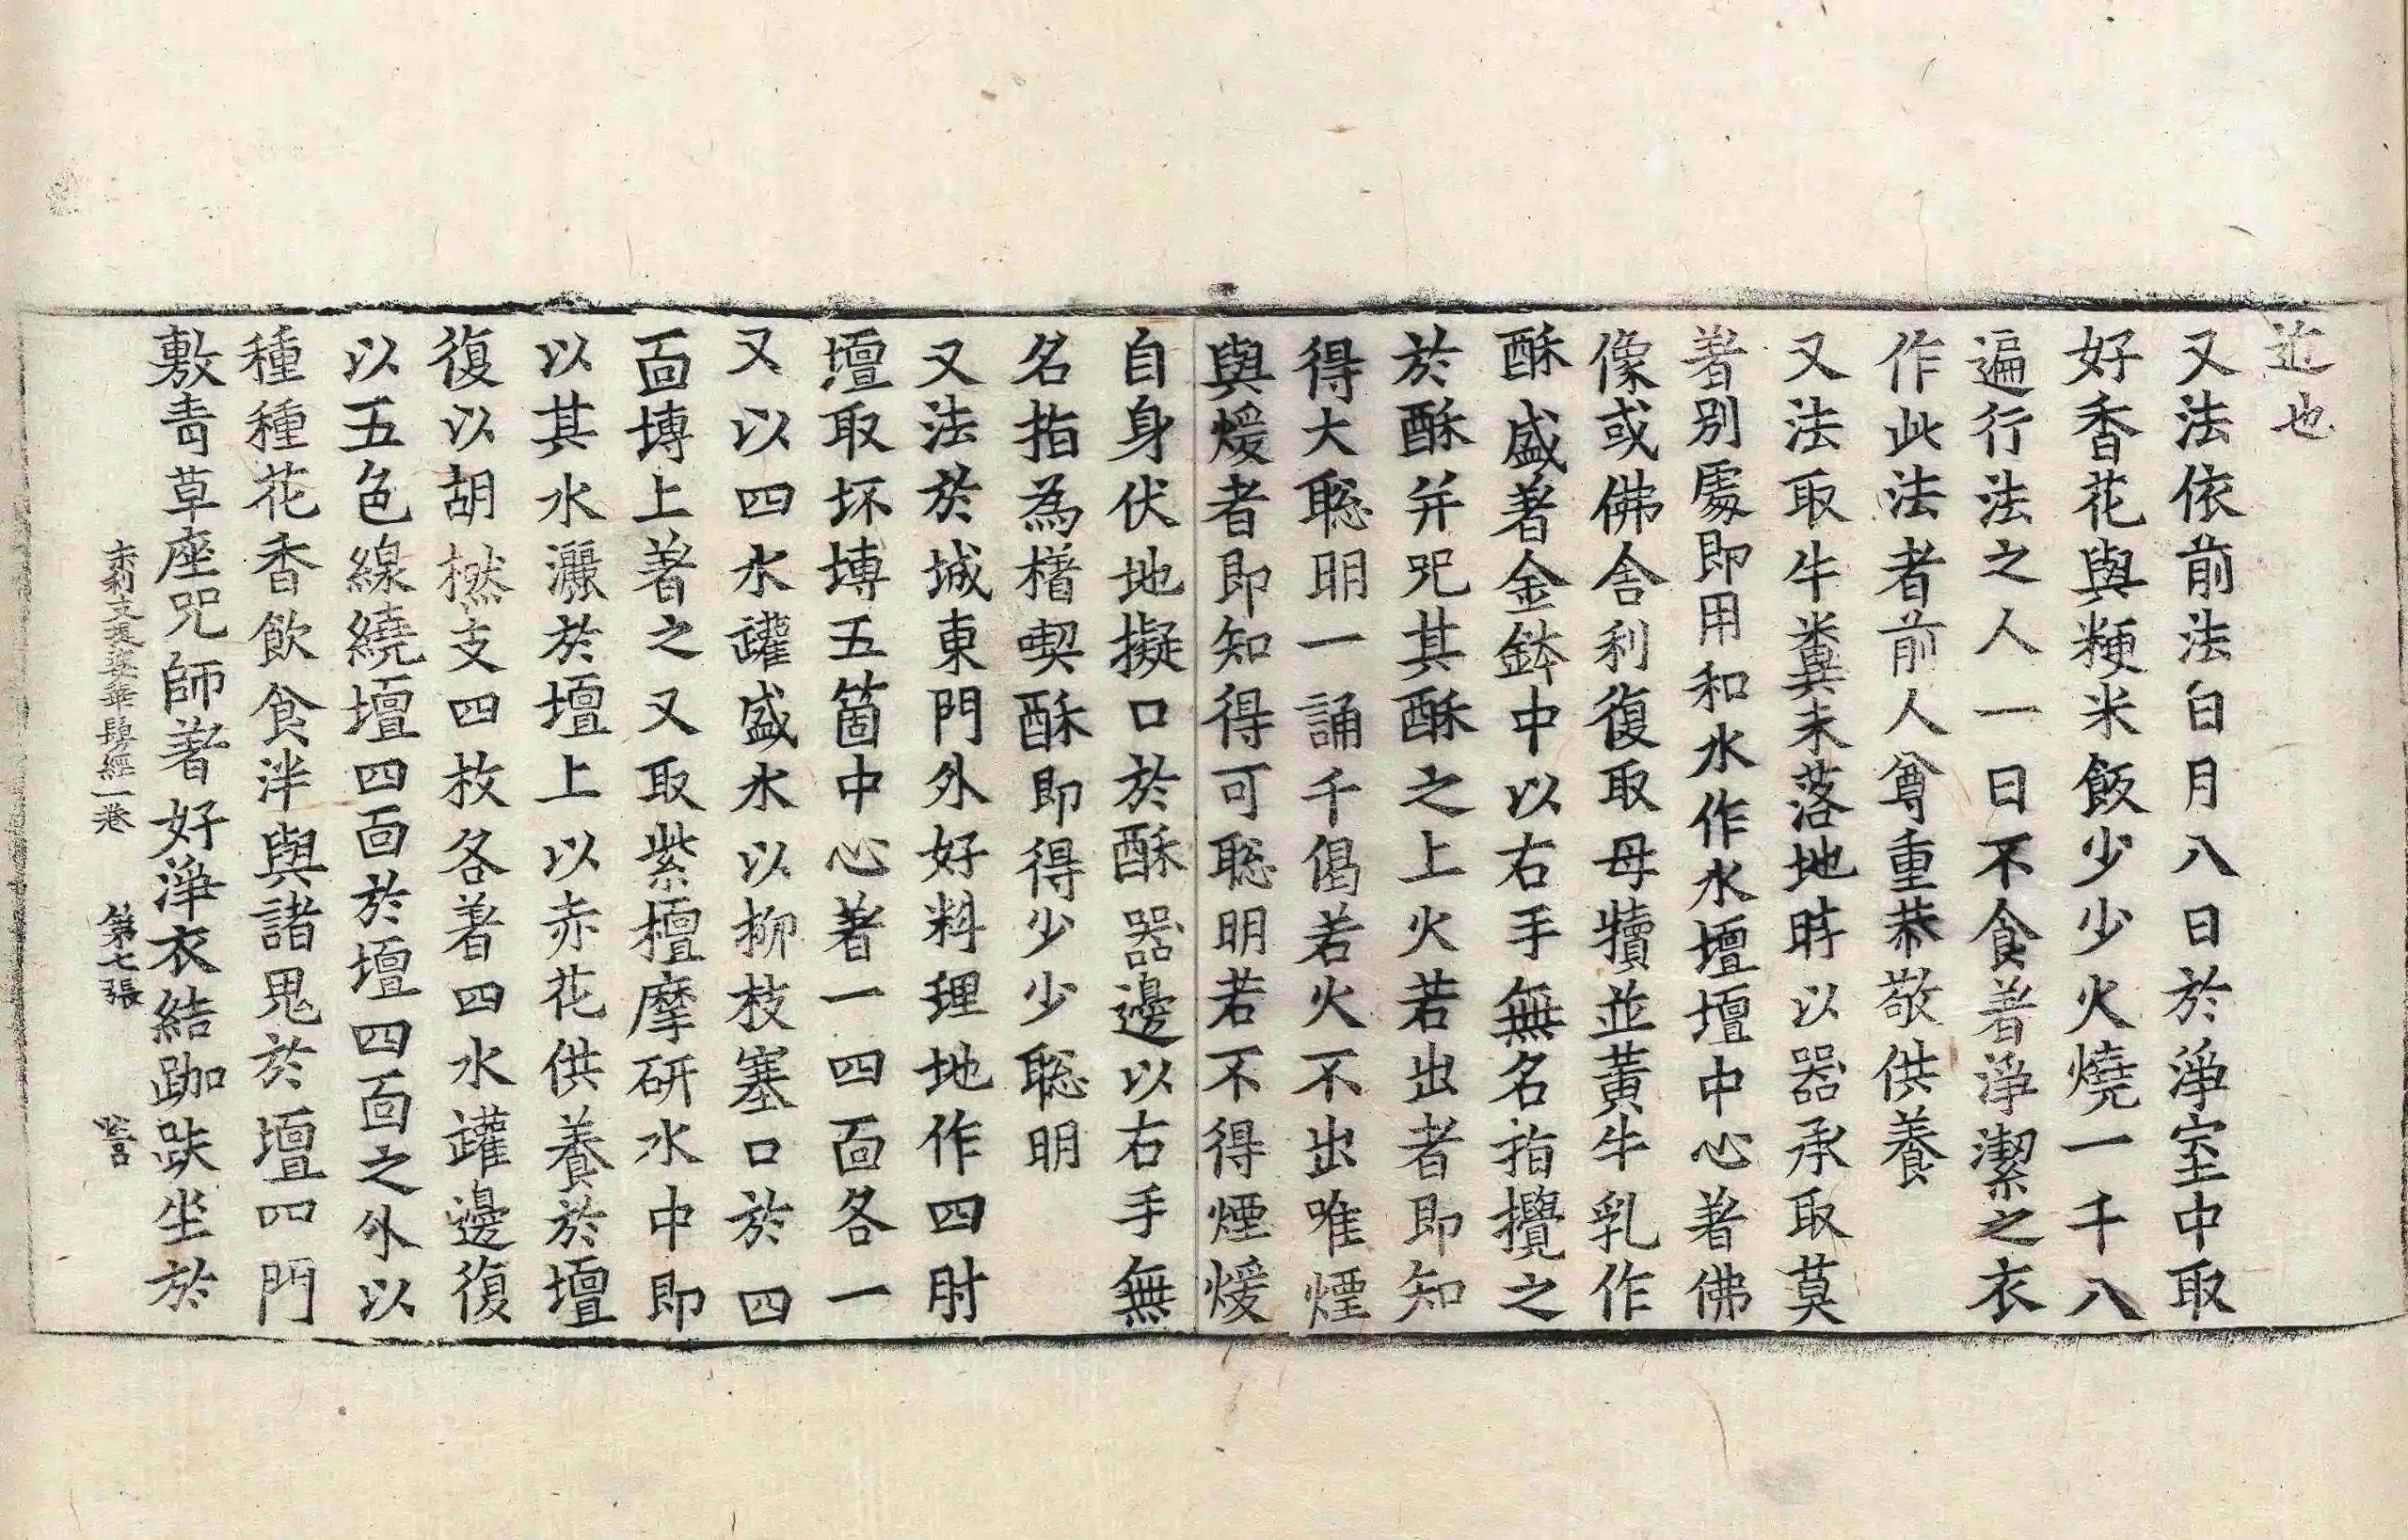 近也
又法依前法白月八日於淨室中取
好香花與粳米飯少少火燒一千八
遍行法之人一日不食著淨潔之衣
作此法者前人尊重恭敬供養
又法取牛糞未落地時以器承取莫
著別處即用和水作水壇壇中心著佛
像或佛舍利復取母犢並黃牛乳作
酥盛著金鉢中以右手無名指攪之
於酥并呪其酥之上火若出者即知
得大聡明一誦千偈若火不出唯煙
與煖者即知得可聡明若不得煙煖
自身伏地擬口於酥器邊以右手無
名指為榰喫酥即得少少聡明
又法於城東門外好料理地作四肘
壇取坏塼五箇中心著一四面各一
又以四水罐盛水以柳枝塞口於四
面塼上著之又取紫檀摩研水中即
以其水灑於壇上以赤花供養於壇
復以胡橪支四枚各著四水罐邊復
以五色線繞壇四面於壇四面之外以
種種花香飲食泮與諸鬼於壇四門
敷青草座呪師著好淨衣結跏趺坐於
末利支提婆華鬘經一卷 第七張